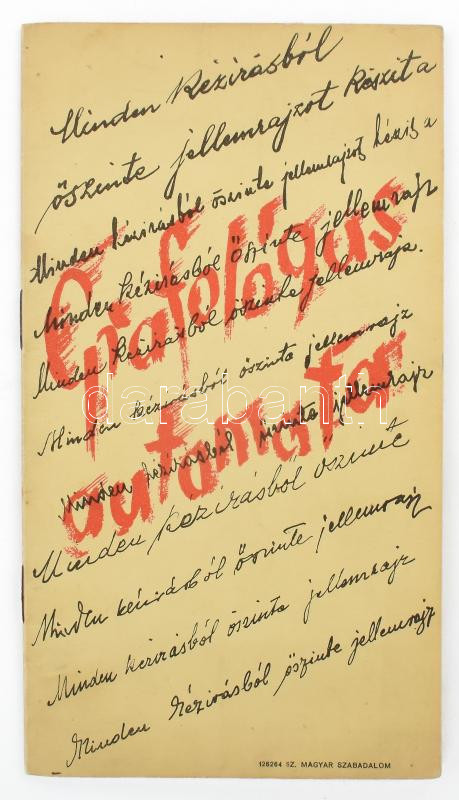 Minden kézírásból
őszinte jellemrajzot készít a
Minden kézírásból őszinte jellemrajzot készít a
Minden kézírásból őszinte jellemrajz
Minden kézírásból őszinte jellemrajz.
Grafológus
Minden kézírásból őszinte jellemrajz
darabanth
Minden kézírásból őszinte jellemrajz
automata
Minden kézírásból őszinte
Minden kézírásból őszinte jellemrajz
Minden kézírásból őszinte jellemrajz
Minden kézírásból őszinte jellemrajz
126264 SZ. MAGYAR SZABADALOM